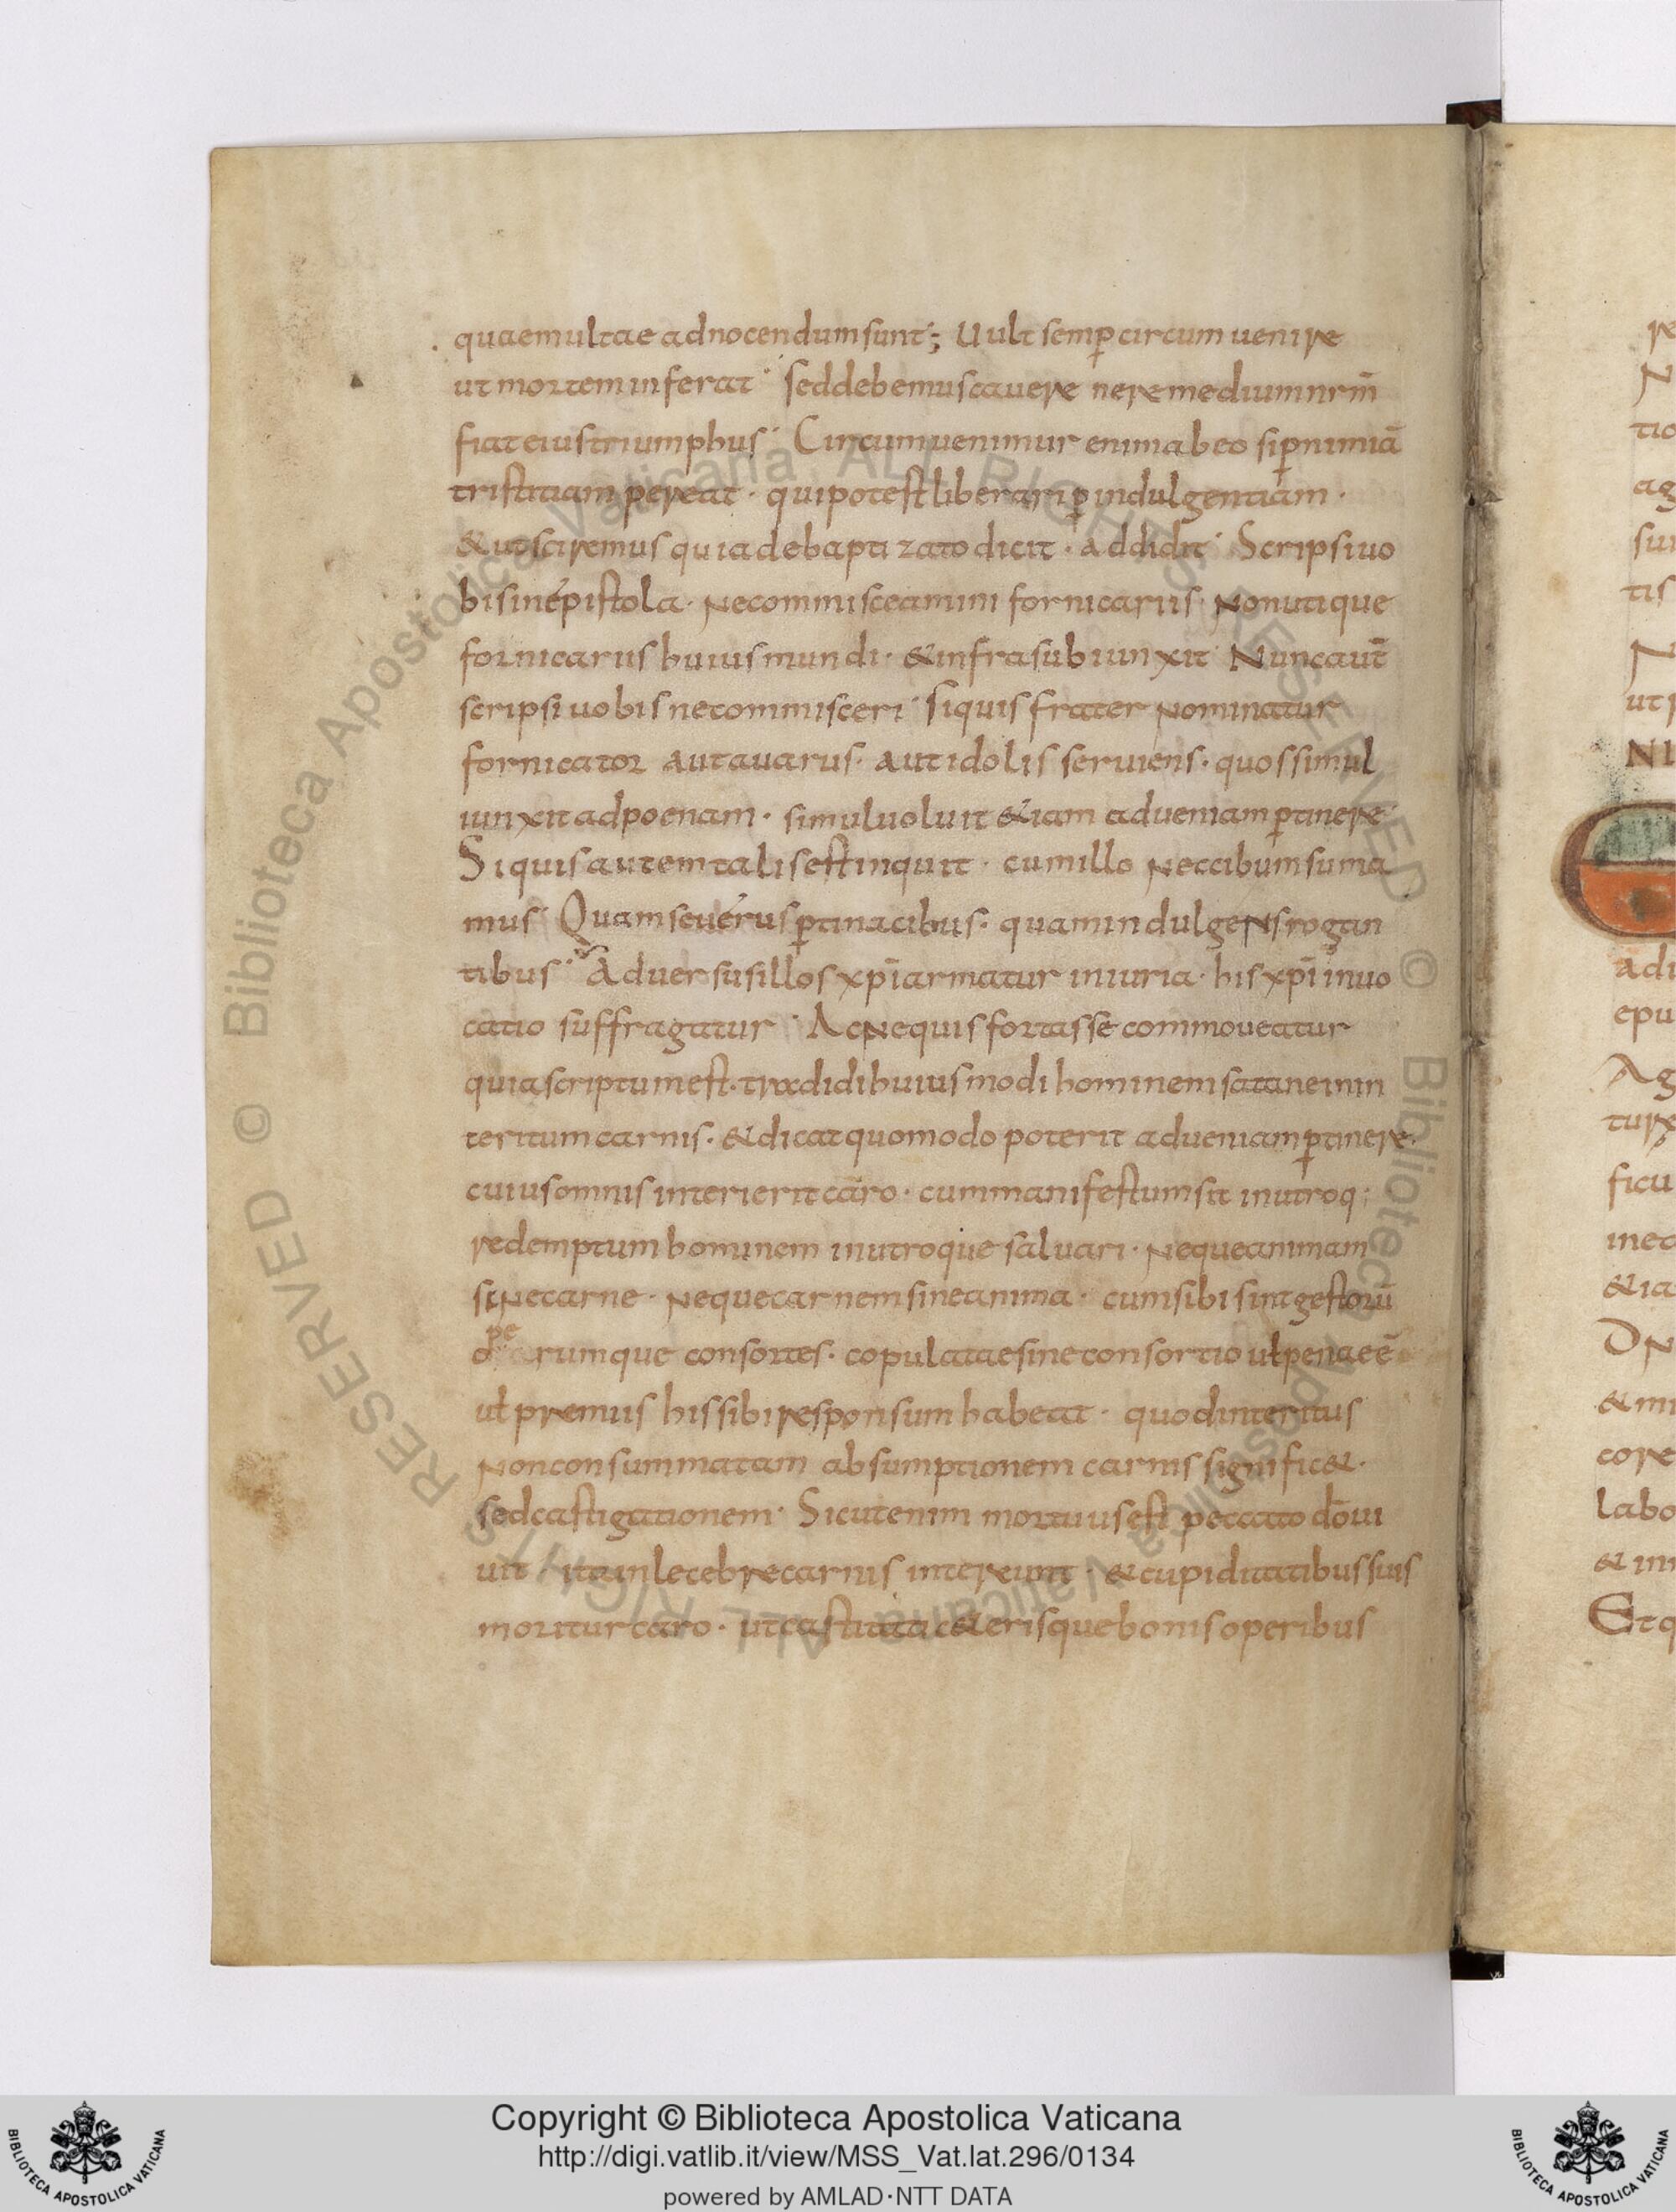 quae multae ad nocendum sunt; Uult semp̱ circum uenire
ut mortem inferat · sed debemus cauere ne remedium nrm̄
fiat eius triumphus · Circumuenimur enim ab eo si p̱ nimiā
tristitiam pereat · qui potest liberari p̱ indulgentiam ·
& ut sciremus quia de baptizato dicit · addidit · Scripsi uo
bis in epistola · Ne commisceamini fornicariis · Non utique
fornicariis huius mundi · & infra subiunxit · Nunc aut̄
scripsi uobis ne commisceri · si quis frater Nominatur
fornicator aut auarus · aut idolis seruiens · quos simul
iunxit ad poenam · simul uoluit &iam ad ueniam p̱tinere
Si quis autem talis est inquit · cum illo Nec cibum suma
mus · Quam seuerus p̱tinacibus · quam indulgeNs rogan
tibus · Aduersus illos xp̄i armatur iniuria · his xp̄i inuo
catio suffragatur · Ac Ne quis fortasse commoueatur
quia scriptum est · tradidi huiusmodi hominem satane in in
teritum carnis · & dicat quomodo poterit ad ueniam p̱tinere ·
cuius omnis interierit caro · cum manifestum sit in utroq;
redemptum hominem in utroque saluari · Neque animam
siNe carne · Neque carnem sine anima · cum sibi sint gestorū
operumque consortes · copulatae sine consortio uł penae eē
uł premiis his sibi responsum habeat · quod interitus
Non consummatam absumptionem carnis signific& ·
sed castigationem · Sicut enim mortuus est peccato dō ui
uit · ita inlecebre carnis intereunt · & cupiditatibus suis
moritur caro · ut castitati c&erisque bonis operibus
re
N
tio
ag
sur
tis
N
ut
NI
adi
epu
Ag
turx
ficu
inec
&ia
DN
& mi
core
labo
& ini
Etq
Copyright © Biblioteca Apostolica Vaticana
http://digi.vatlib.it/view/MSS_Vat.lat.296/0134
powered by AMLAD·NTT DATA
BIBLIOTECA APOSTOLICA VATICANA
BIBLIOTECA APOSTOLICA VATICANA
Biblioteca Apostolica Vaticana ALL RIGHTS RESERVED ©
Biblioteca Apostolica Vaticana ALL RIGHTS RESERVED ©